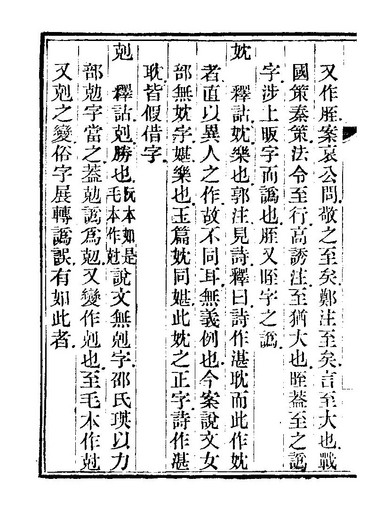 又作胵案哀公問敬之至矣鄭注至矣言至大也戰
國策秦策法令至行高誘注至猶大也晊蓋至之譌
字涉上昄字而譌也胵又晊字之譌
妉　釋詁妉樂也郭注見詩釋曰詩作湛耽而此作妉
者直以異人之作故不同耳無義例也今案說文女
部無妉字媅樂也玉篇妉同媅此妉之正字詩作湛
耽皆假借字
剋　釋詁剋勝也阮本如是毛本作尅說文無剋字邵氏琪以力
部勀字當之蓋勀譌為剋又變作剋也至毛本作尅
又剋之變俗字展轉譌誤有如此者